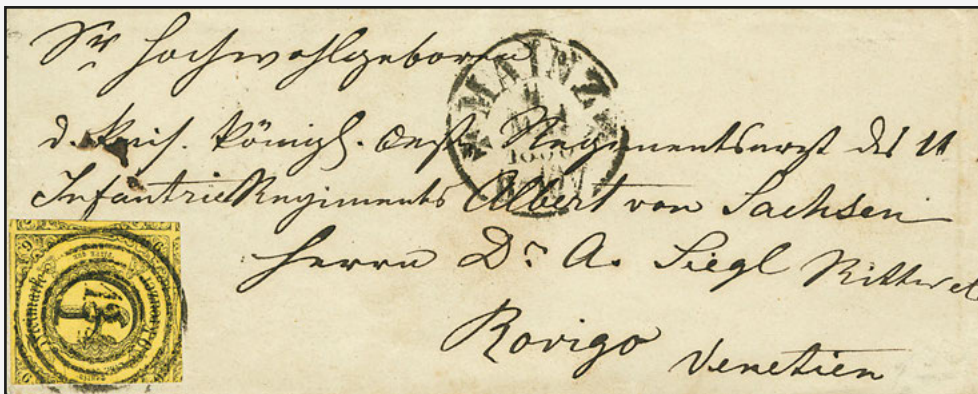 Sr. Hochwohlgeboren
MAINZ
d. Kais. Königl. Oest. Regimentsarzt des 11
Infantrie Regiments Albert von Sachsen
Herrn Dr. A. Siegl Ritter
Rovigo Venetien
Freimarke